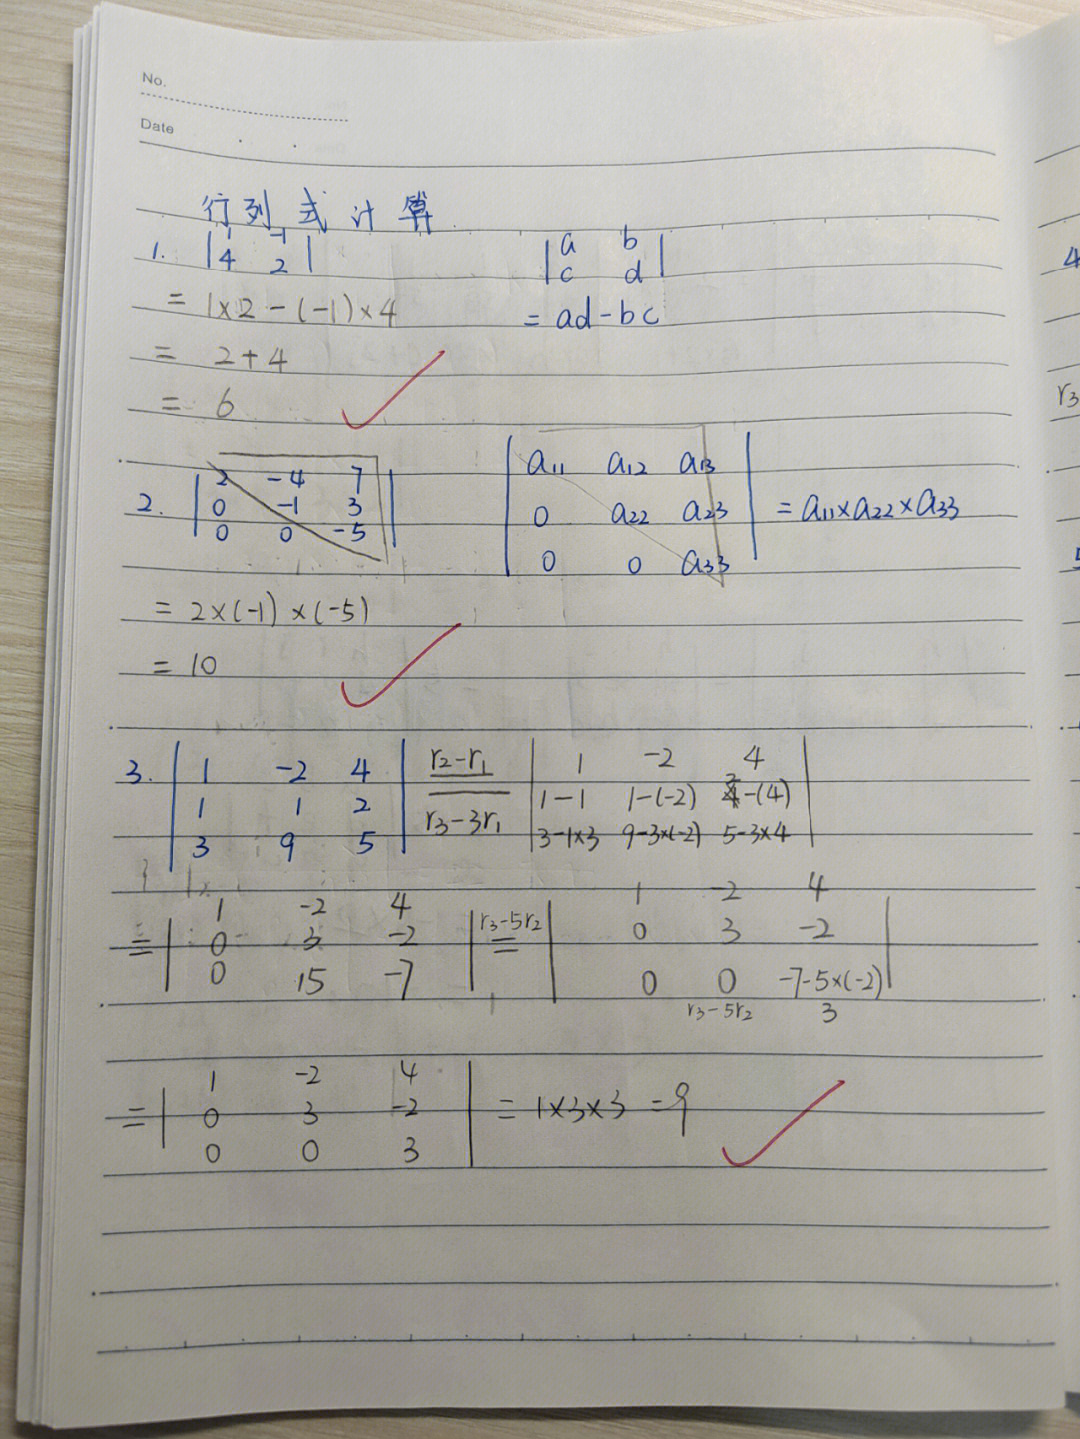 No.
Date
行列式计算
1. | 1 -1 |
| 4 2 |
= 1×2-(-1)×4
= 2+4
= 6
| a b |
| c d |
= ad-bc
2. | 2 -4 7 |
| 0 -1 3 |
| 0 0 -5 |
= 2×(-1)×(-5)
= 10
| a11 a12 a13 |
| 0 a22 a23 | = a11×a22×a33
| 0 0 a33 |
3. | 1 -2 4 |
| 1 1 2 |
| 3 9 5 |
r2-r1
r3-3r1
| 1 -2 4 |
| 1-1 1-(-2) 2-(4) |
| 3-1×3 9-3×(-2) 5-3×4 |
= | 1 -2 4 |
| 0 3 -2 |
| 0 15 -7 |
r3-5r2
=
| 1 -2 4 |
| 0 3 -2 |
| 0 0 -7-5×(-2) |
r3-5r2 3
= | 1 -2 4 |
| 0 3 -2 | = 1×3×3 =9
| 0 0 3 |
4
r3